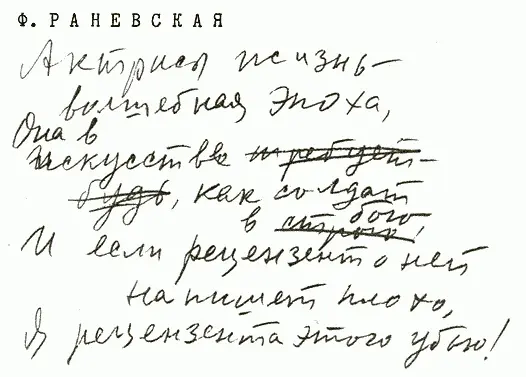 Ф. РАНЕВСКАЯ
Актрисы жизнь –
волшебная эпоха,
Она в
искусстве требует
будь, как солдат
в строю бою,
И если рецензент о ней
напишет плохо,
Я рецензента этого убью!